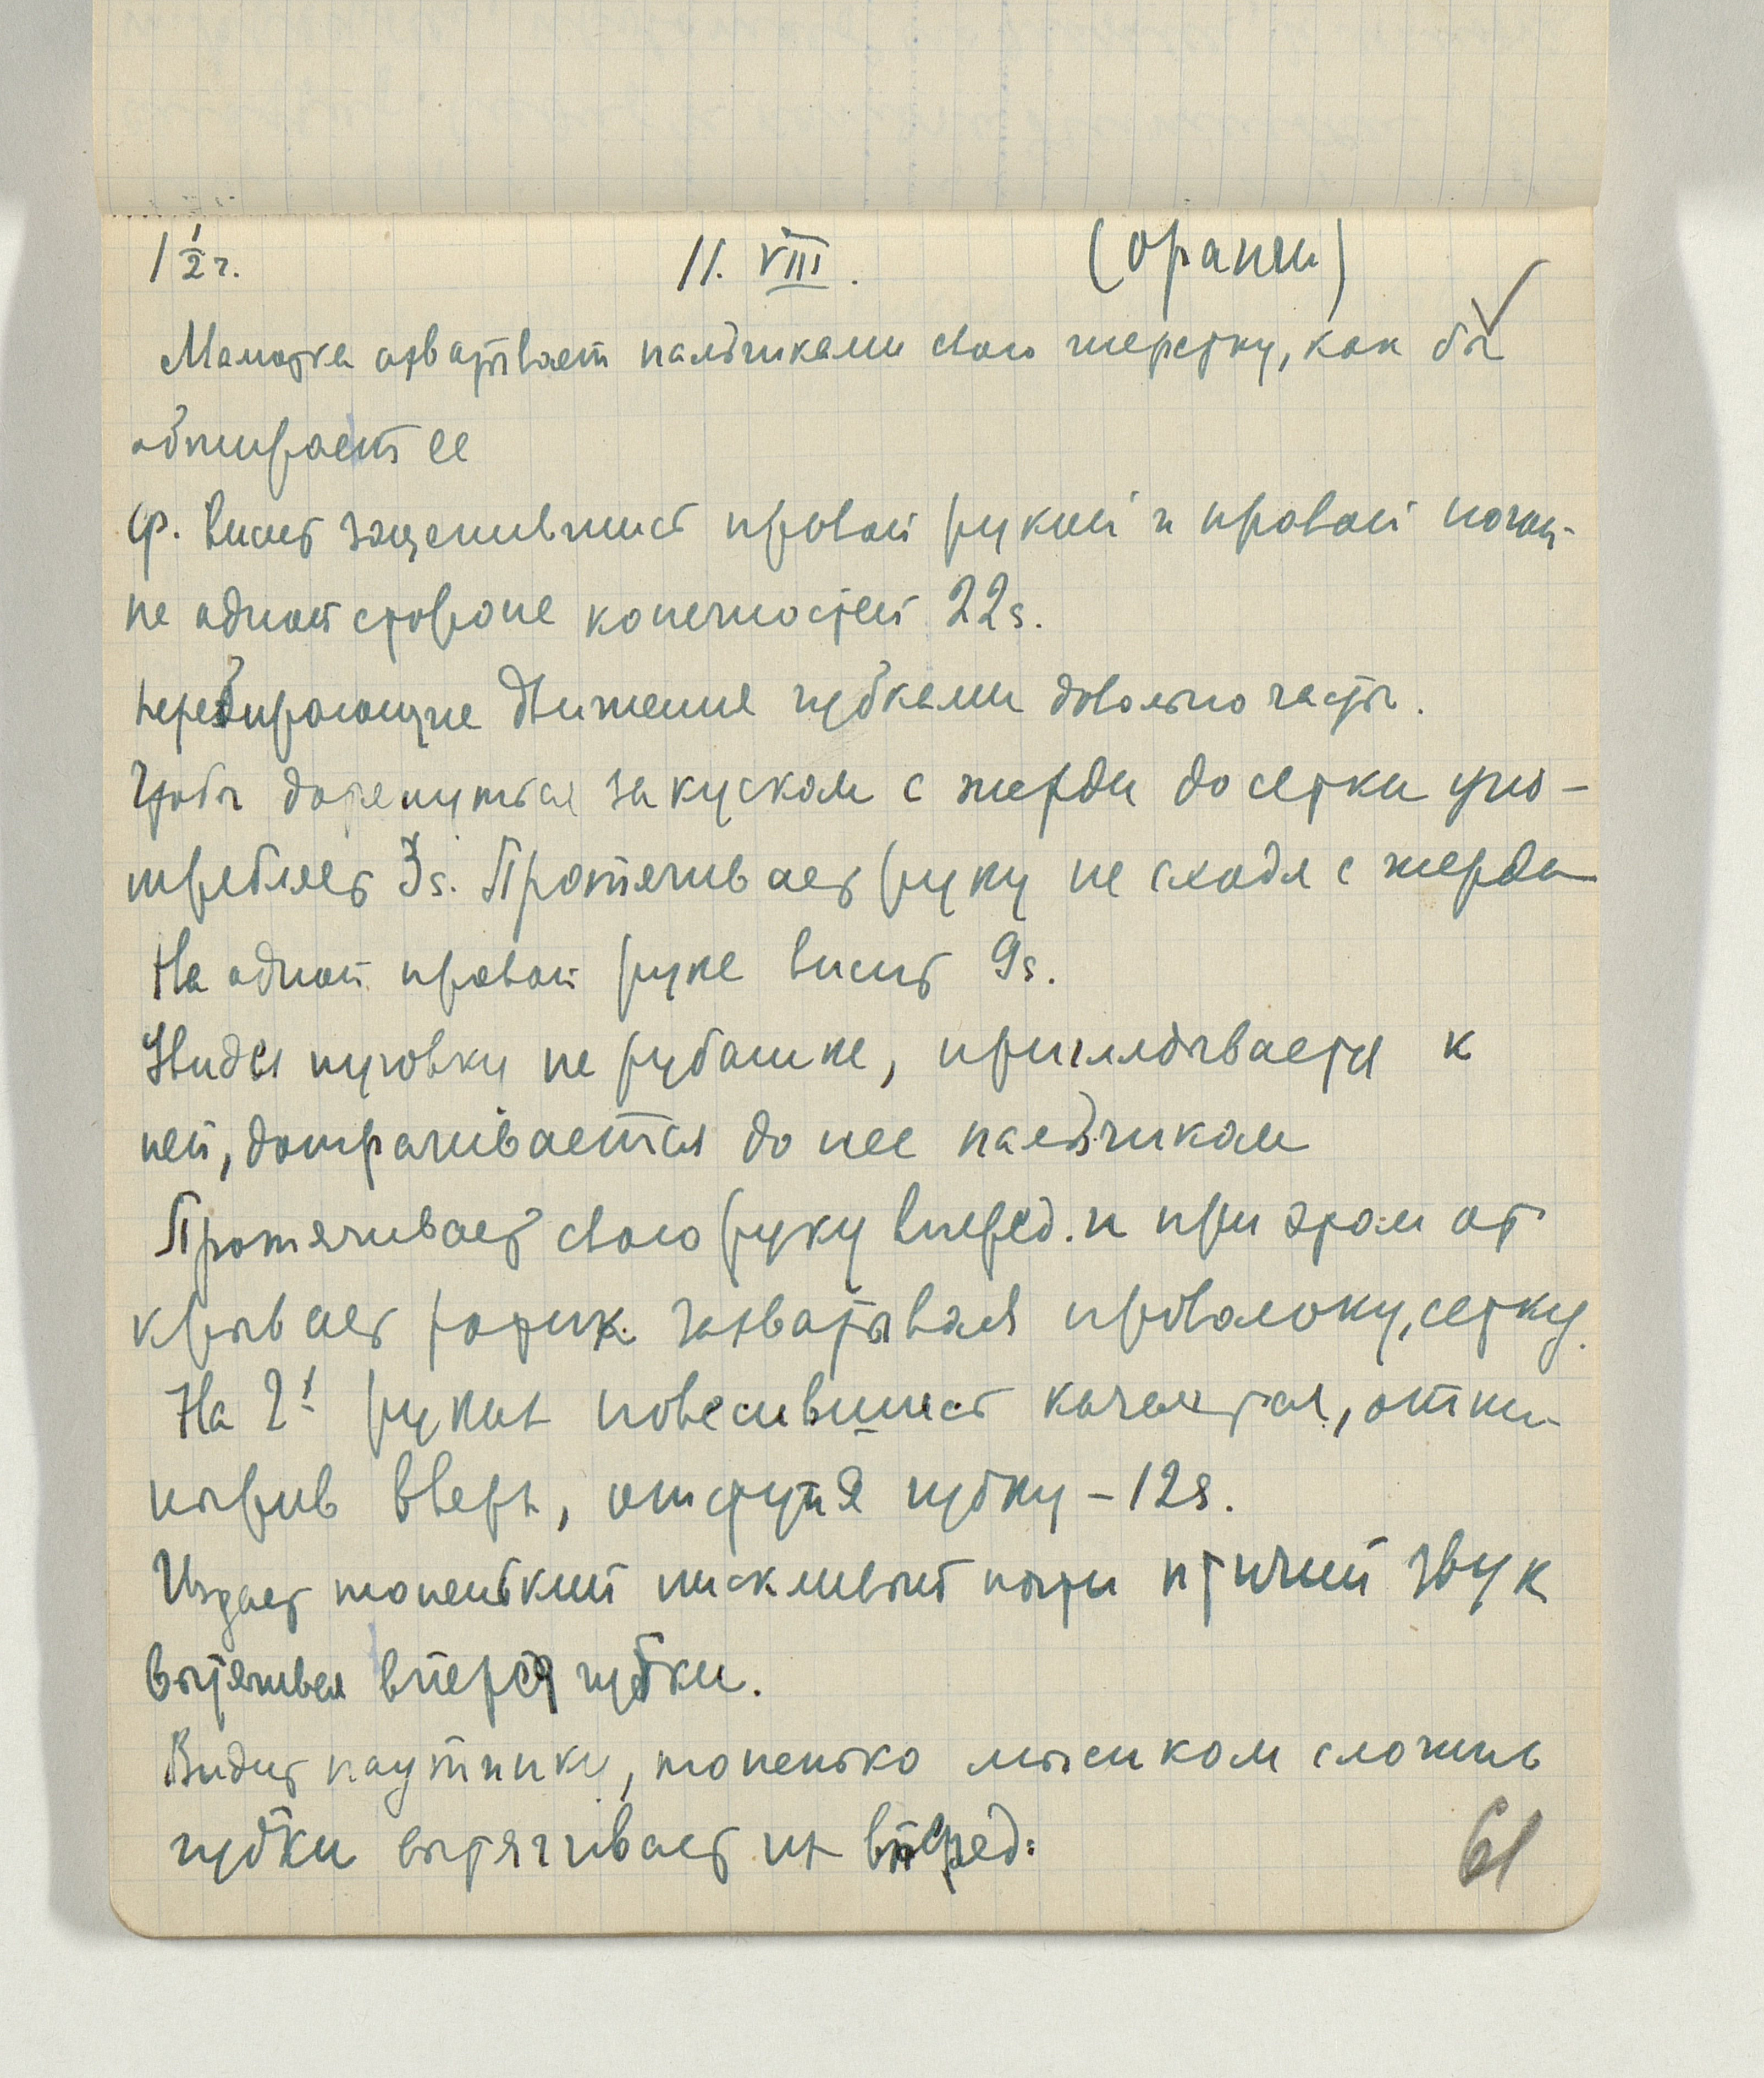 1 1/2 г. 11. VIII. (оранги)
Мамочка охватывает пальчиками свою шерстку, как бы
обтирает ее
Ф. висит зацепившись правой рукой и правой ногой
на одной стороне конечностей 22s.
перебирающие движения губками довольно часты.
Чтобы дотянуться за куском с жерди до сетки упо-
требляет 3s. Протягивает руку не сходя с жерди
На одной правой руке висит 9s.
Увидя пуговку на рубашке, приглядывается к
ней, дотрагивается до нее пальчиком
Протягивает свою руку вперед. и при этом от
крывает ротик захватывая проволоку, сетку.
На 2х руках повесившись качается, отто-
пырив вверх, отструня губку – 12s.
Издает тоненький пискливый почти птичий звук
вытягивая вперед губки.
Видит паутинку, тоненько мысиком сложив
губки вытягивает их вперед.
61